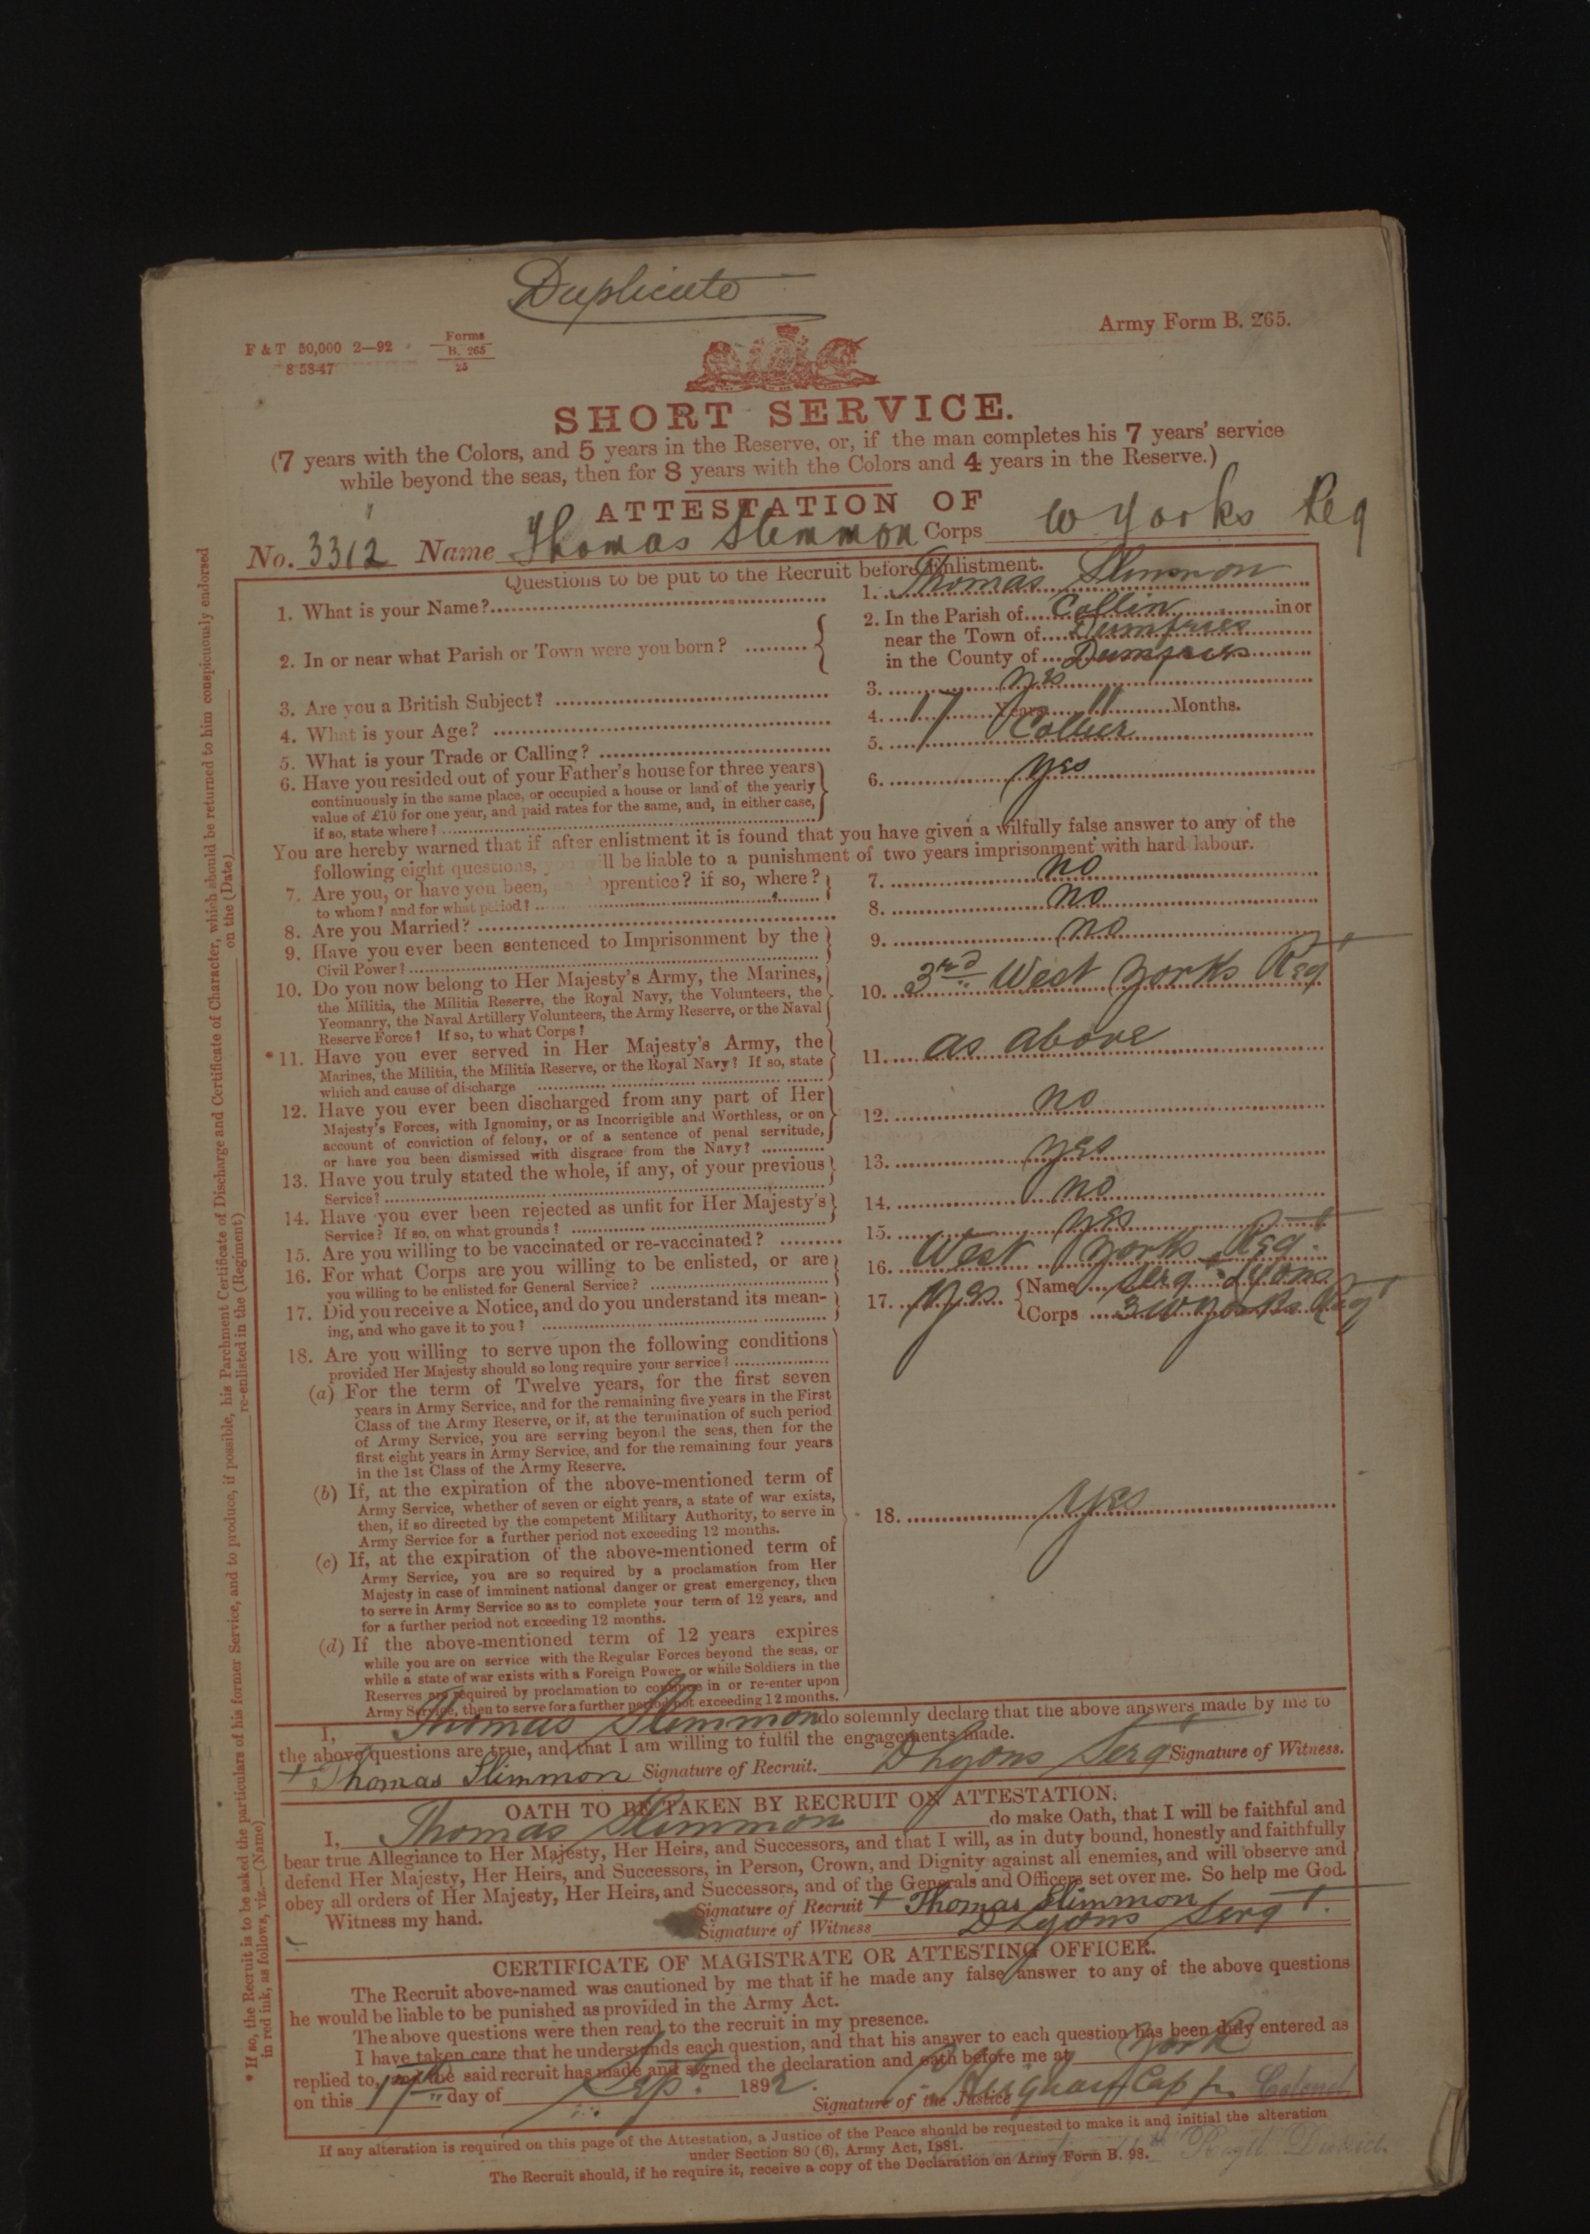 Duplicate
Army Form B. 265.
F & T 50,000 2—92 Forms
B. 265
8 5847 25
SHORT SERVICE.
(7 years with the Colors, and 5 years in the Reserve, or, if the man completes his 7 years' service
while beyond the seas, then for 8 years with the Colors and 4 years in the Reserve.)
ATTESTATION OF
No. 3312 Name Thomas Slimmon Corps W Yorks Reg
Questions to be put to the Recruit before Enlistment.
1. What is your Name?
1. Thomas Slimmon
2. In or near what Parish or Town were you born?
2. In the Parish of Collin in or
near the Town of Dumfries
in the County of Dumfries
3. Are you a British Subject?
3. yes
4. What is your Age?
4. 17 Years 11 Months.
5. What is your Trade or Calling?
5. Collier
6. Have you resided out of your Father's house for three years
continuously in the same place, or occupied a house or land of the yearly
value of £10 for one year, and paid rates for the same, and, in either case,
if so, state where?
6. yes
You are hereby warned that if after enlistment it is found that you have given a wilfully false answer to any of the
following eight questions, you will be liable to a punishment of two years imprisonment with hard labour.
7. Are you, or have you been, an Apprentice? if so, where?
to whom? and for what period?
7. no
8. Are you Married?
8. no
9. Have you ever been sentenced to Imprisonment by the
Civil Power?
9. no
10. Do you now belong to Her Majesty's Army, the Marines,
the Militia, the Militia Reserve, the Royal Navy, the Volunteers, the
Yeomanry, the Naval Artillery Volunteers, the Army Reserve, or the Naval
Reserve Force? If so, to what Corps?
10. 3rd West Yorks Regt
*11. Have you ever served in Her Majesty's Army, the
Marines, the Militia, the Militia Reserve, or the Royal Navy? If so, state
which and cause of discharge
11. as above
12. Have you ever been discharged from any part of Her
Majesty's Forces, with Ignominy, or as Incorrigible and Worthless, or on
account of conviction of felony, or of a sentence of penal servitude,
or have you been dismissed with disgrace from the Navy?
12. no
13. Have you truly stated the whole, if any, of your previous
Service?
13. yes
14. Have you ever been rejected as unfit for Her Majesty's
Service? If so, on what grounds?
14. no
15. Are you willing to be vaccinated or re-vaccinated?
15. yes
16. For what Corps are you willing to be enlisted, or are
you willing to be enlisted for General Service?
16. West Yorks Regt.
17. Did you receive a Notice, and do you understand its mean-
ing, and who gave it to you?
17. yes Name Sergt Lyons
Corps 3 W Yorks Regt
18. Are you willing to serve upon the following conditions
provided Her Majesty should so long require your service?
(a) For the term of Twelve years, for the first seven
years in Army Service, and for the remaining five years in the First
Class of the Army Reserve, or if, at the termination of such period
of Army Service, you are serving beyond the seas, then for the
first eight years in Army Service, and for the remaining four years
in the 1st Class of the Army Reserve.
(b) If, at the expiration of the above-mentioned term of
Army Service, whether of seven or eight years, a state of war exists,
then, if so directed by the competent Military Authority, to serve in
Army Service for a further period not exceeding 12 months.
18. yes
(c) If, at the expiration of the above-mentioned term of
Army Service, you are so required by a proclamation from Her
Majesty in case of imminent national danger or great emergency, then
to serve in Army Service so as to complete your term of 12 years, and
for a further period not exceeding 12 months.
(d) If the above-mentioned term of 12 years expires
while you are on service with the Regular Forces beyond the seas, or
while a state of war exists with a Foreign Power, or while Soldiers in the
Reserves are required by proclamation to continue in or re-enter upon
Army Service, then to serve for a further period not exceeding 12 months.
I, Thomas Slimmon do solemnly declare that the above answers made by me to
the above questions are true, and that I am willing to fulfil the engagements made.
+ Thomas Slimmon Signature of Recruit. D Lyons Sergt Signature of Witness.
OATH TO BE TAKEN BY RECRUIT ON ATTESTATION.
I, Thomas Slimmon do make Oath, that I will be faithful and
bear true Allegiance to Her Majesty, Her Heirs, and Successors, and that I will, as in duty bound, honestly and faithfully
defend Her Majesty, Her Heirs, and Successors, in Person, Crown, and Dignity against all enemies, and will observe and
obey all orders of Her Majesty, Her Heirs, and Successors, and of the Generals and Officers set over me. So help me God.
Witness my hand. Signature of Recruit + Thomas Slimmon
Signature of Witness D Lyons Sergt.
CERTIFICATE OF MAGISTRATE OR ATTESTING OFFICER.
The Recruit above-named was cautioned by me that if he made any false answer to any of the above questions
he would be liable to be punished as provided in the Army Act.
The above questions were then read to the recruit in my presence.
I have taken care that he understands each question, and that his answer to each question has been duly entered as
replied to, and the said recruit has made and signed the declaration and oath before me at York
on this 17th day of Sept. 1892.
Signature of the Justice Capt Colonel
If any alteration is required on this page of the Attestation, a Justice of the Peace should be requested to make it and initial the alteration
under Section 80 (6), Army Act, 1881.
Regtl District.
The Recruit should, if he require it, receive a copy of the Declaration on Army Form B. 98.
* If so, the Recruit is to be asked the particulars of his former Service, and to produce, if possible, his Parchment Certificate of Discharge and Certificate of Character, which should be returned to him conspicuously endorsed
in red ink, as follows, viz.—(Name) re-enlisted in the (Regiment) on the (Date)